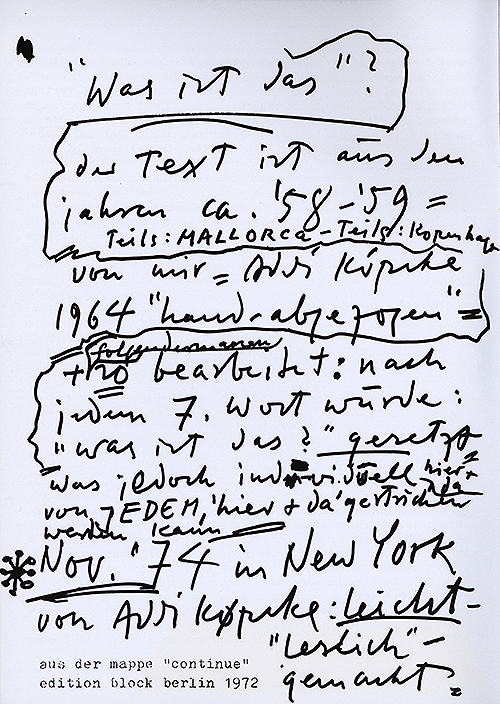 "Was ist das"?
der Text ist aus den
jahren ca. '58-'59 =
Teils: MALLORCA - Teils: Kopenhagen
von mir = Addi Køpcke
1964 "hand-abgezogen" =
folgendermassen
+ so bearbeitet: nach
jedem 7. Wort würde:
"was ist das?" gesetzt
was jedoch individuell hier +
da
von JEDEM, 'hier + da' gestrichen
werden kann
* Nov. '74 in New York
von Addi Køpcke: leicht-
"leslich"-
gemacht
aus der mappe "continue"
edition block berlin 1972